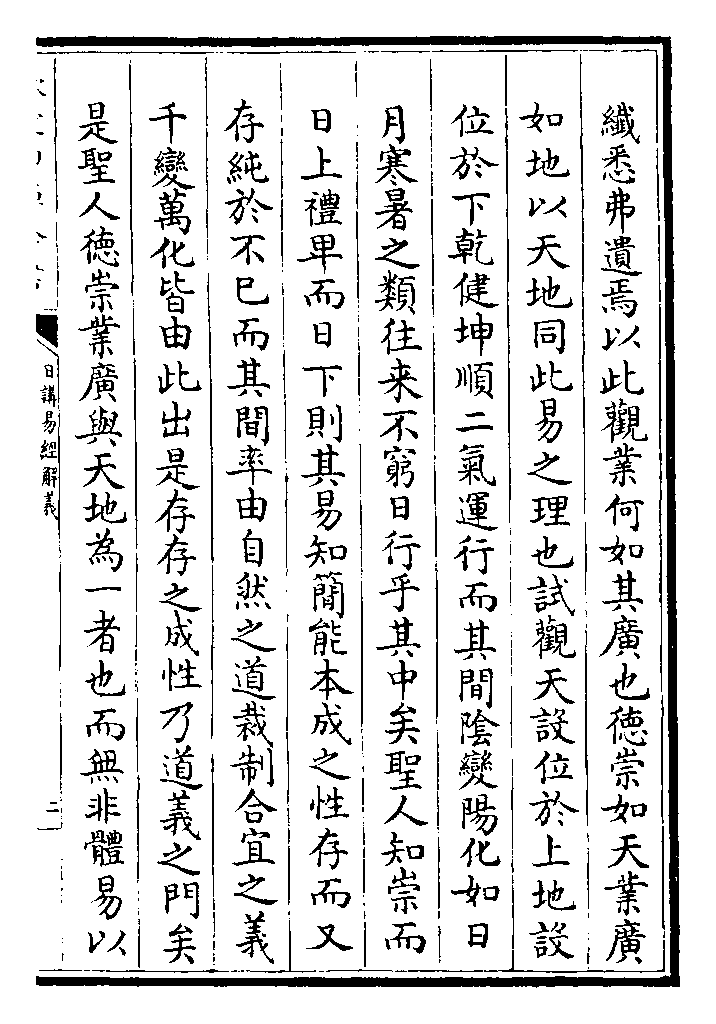 纖悉弗遺焉以此觀業何如其廣也德崇如天業廣
如地以天地同此易之理也試觀天設位於上地設
位於下乾健坤順二氣運行而其間陰變陽化如日
月寒暑之類往来不窮日行乎其中矣聖人知崇而
日上禮卑而日下則其易知簡能本成之性存而又
存純於不已而其間率由自然之道裁制合宜之義
千變萬化皆由此出是存存之成性乃道義之門矣
是聖人德崇業廣與天地為一者也而無非體易以
日講易經解義
二